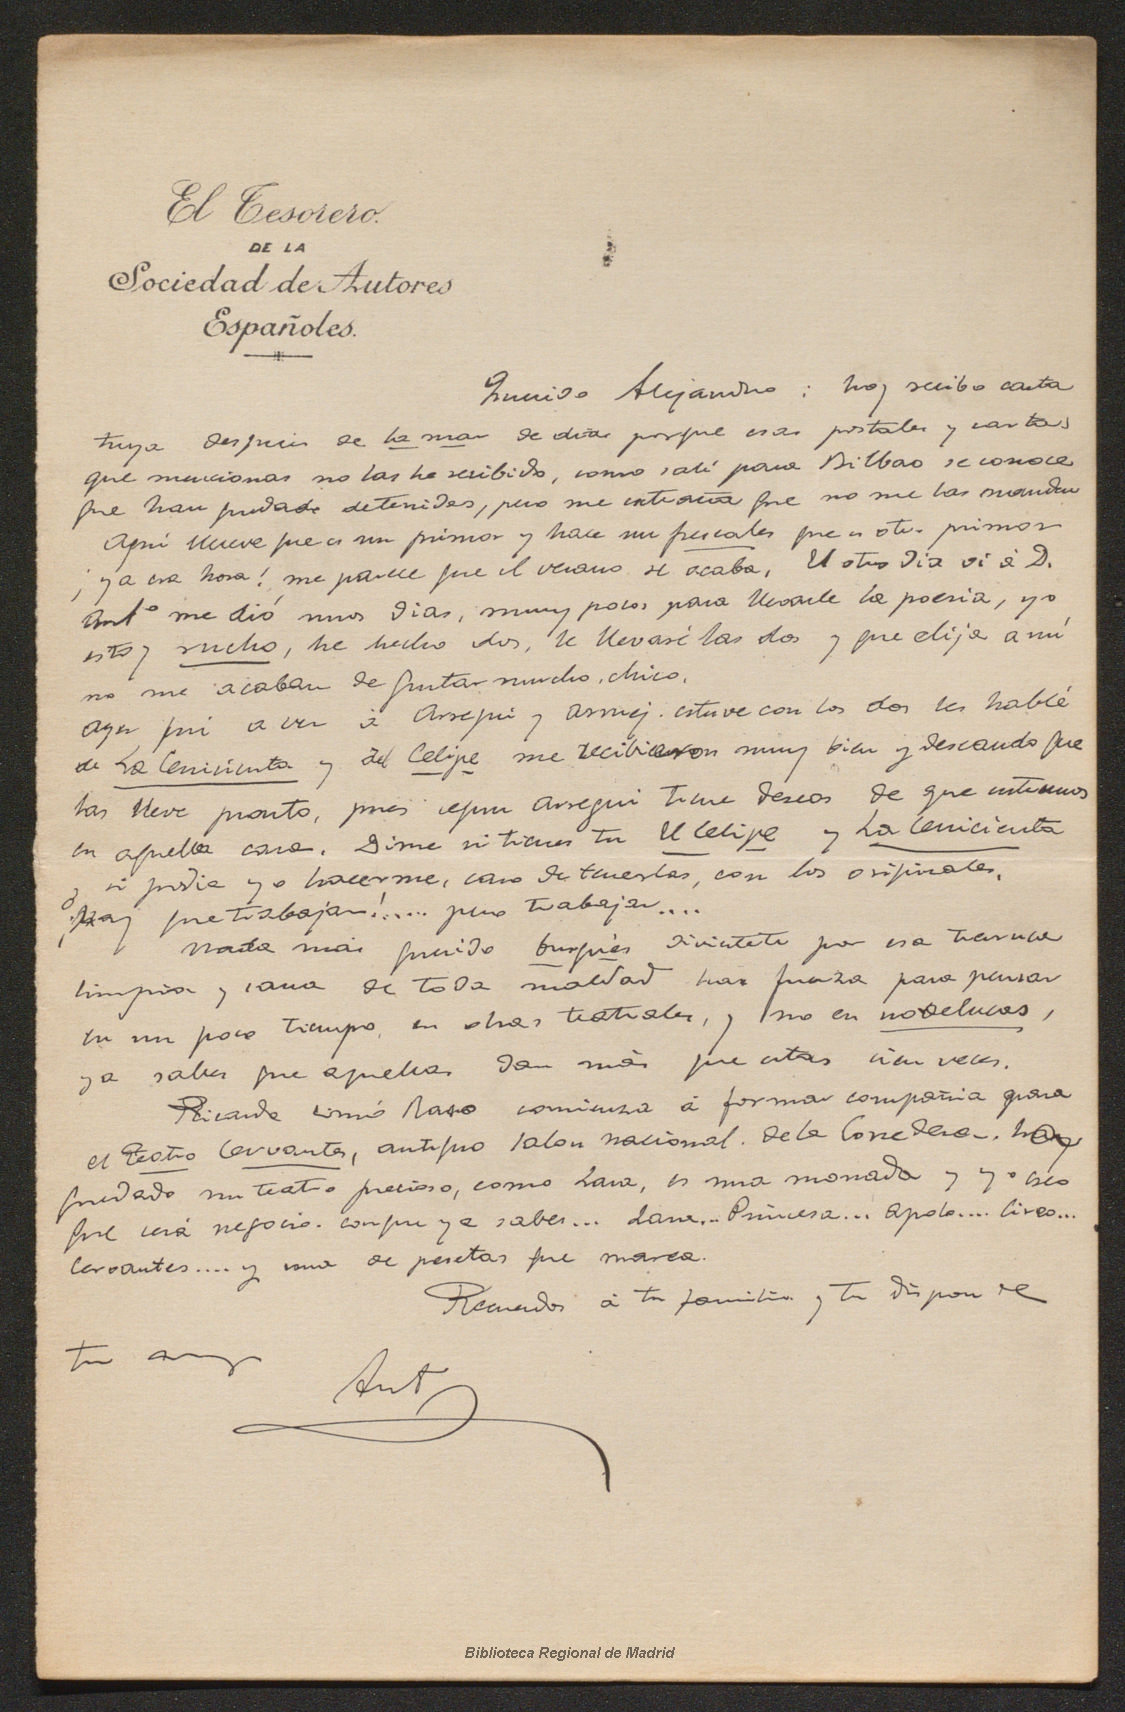 El Tesorero.
DE LA
Sociedad de Autores
Españoles.
Querido Alejandro: hoy recibo carta
tuya despues de la mar de dias porque esas postales y cartas
que mencionas no las he recibido, como salí para Bilbao se conoce
que han quedado detenidas, pero me extraña que no me las manden
Aquí llueve que es un primor y hace un que es otro primor
¡ya era hora! me parece que el verano se acaba. El otro dia vi á D.
Antº me dió unos dias, muy pocos para llevarle la poesia, yo
estoy sucho, he hecho dos, le llevaré las dos y que elija a mi
no me acaban de gustar mucho, chico.
Ayer fui a ver á Arregui y Aruej. estuve con los dos les hablé
de La Cenicienta y del Celipe me recibieron muy bien y deseando que
las lleve pronto, pues segun Arregui tiene deseos de que entremos
en aquella casa. Dime si tienes tu El Celipe y La Cenicienta
y si podia yo hacerme, caso de tenerlas, con los originales.
¡Hay que trabajar!..... pero trabajar....
Nada más querido burgués diviertete por esa tierruca
limpia y sana de toda maldad haz fuerza para pensar
en un poco tiempo en obras teatrales, y no en
ya sabes que aquellas dan más que estas cien veces.
Ricardo Simó Raso comienza á formar compañia para
el Teatro Cervantes, antiguo salon nacional. de la Corredera. Hay
quedado un teatro precioso, como Lara, es una monada y yo creo
que será negocio. conque ya sabes... Lara... Princesa... Apolo.... Circo...
Cervantes.... y una de pesetas que marea.
Recuerdos á tu familia y tu dispon de
tu amigo
Ant
Biblioteca Regional de Madrid